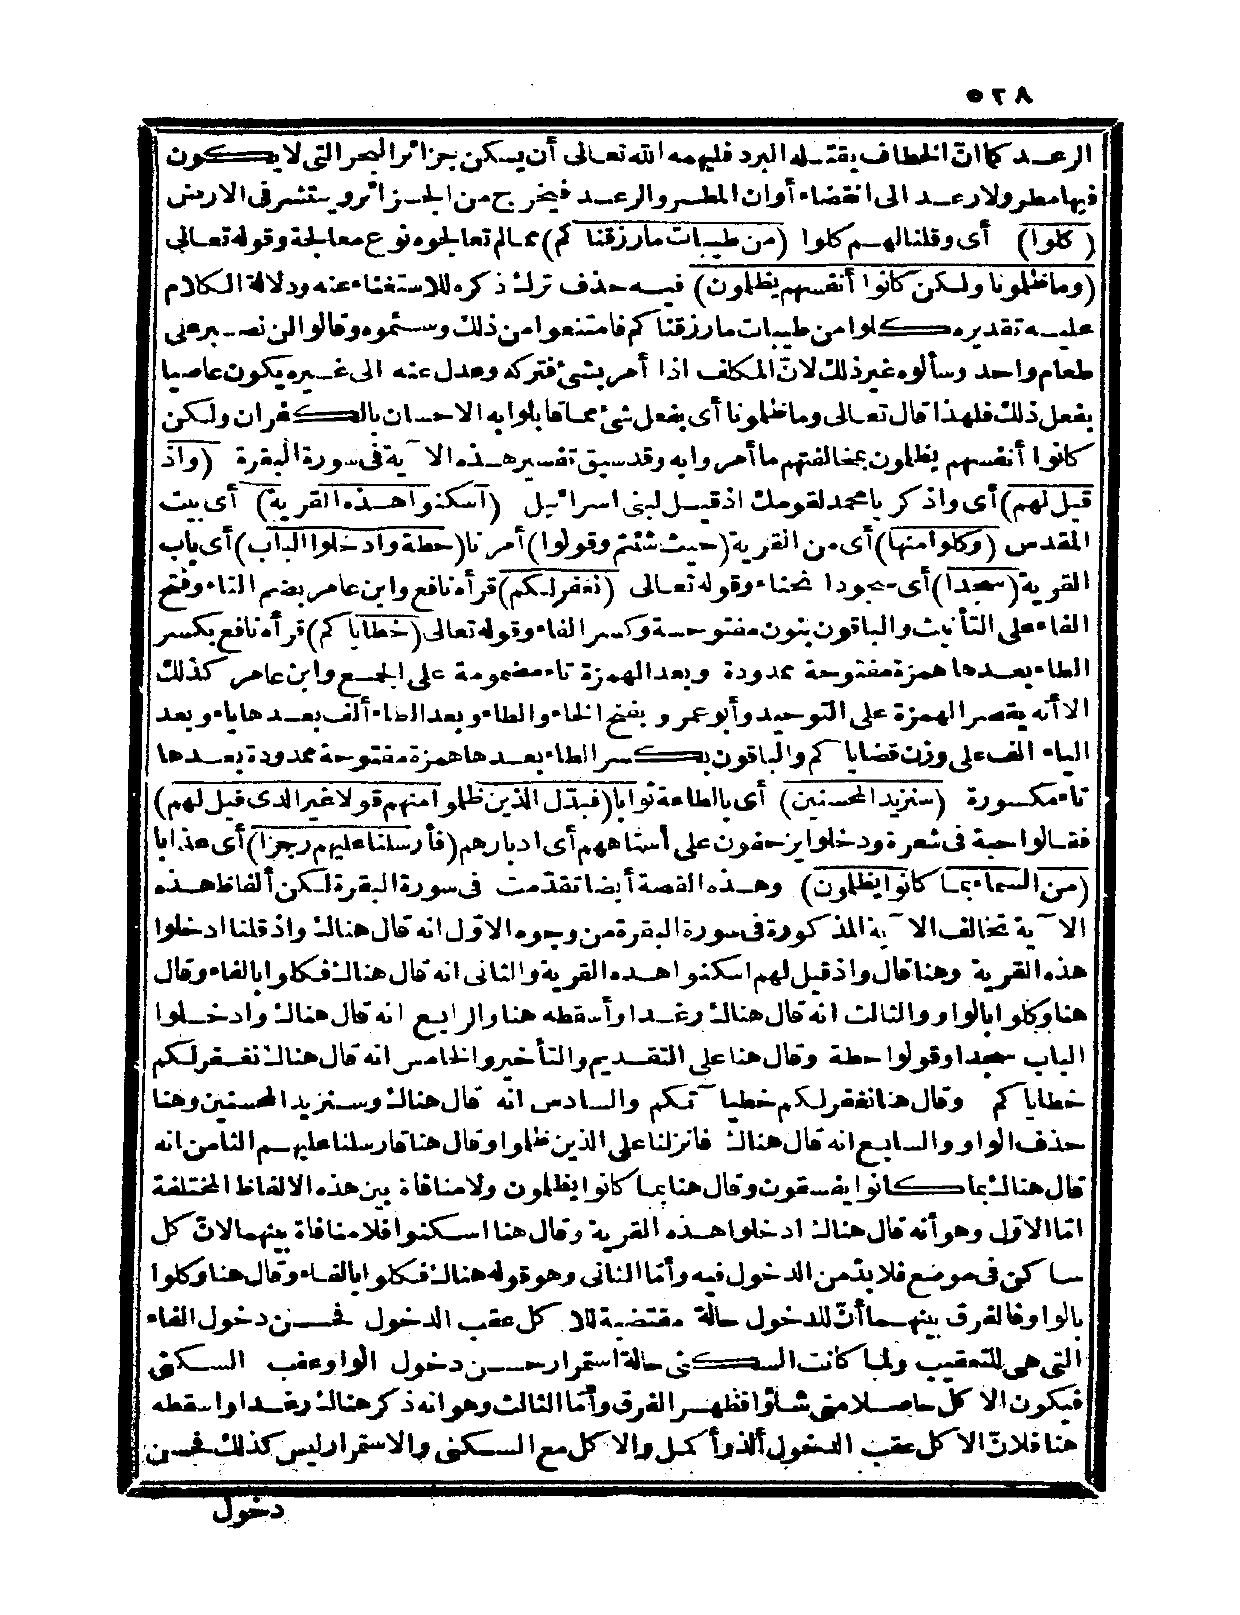 ٥٢٨
الرعد كما انّ الخطاف يقتله البرد فليهمه الله تعالى أن يسكن بجزائر البحر التى لا يكون
فيها مطر ولا رعد الى انقضاء أوان المطر والرعد فيخرج من الجزائر وينتشر فى الارض
(كلوا) أى وقلنا لهم كلوا (من طيبات ما رزقناكم) مما لم تعالجوه نوع معالجة وقوله تعالى
(وما ظلمونا ولكن كانوا أنفسهم يظلمون) فيه حذف ترك ذكره للاستغناء عنه ودلالة الكلام
عليه تقديره كلوا من طيبات ما رزقناكم فامتنعوا من ذلك وسئموه وقالوا لن نصبر على
طعام واحد وسألوه غير ذلك لانّ المكلف اذا أمر بشئ فتركه وعدل عنه الى غيره يكون عاصيا
بفعل ذلك فلهذا قال تعالى وما ظلمونا أى بفعل شئ مما قابلوا به الاحسان بالكفران ولكن
كانوا أنفسهم يظلمون بمخالفتهم ما أمروا به وقد سبق تفسير هذه الآية فى سورة البقرة (واذ
قيل لهم) أى واذكر يا محمد لقومك اذ قيل لبنى اسرائيل (اسكنوا هذه القرية) أى بيت
المقدس (وكلوا منها) أى من القرية (حيث شئتم وقولوا) أمرنا (حطة وادخلوا الباب) أى باب
القرية (سجدا) أى سجود انحناء وقوله تعالى (نغفر لكم) قرأه نافع وابن عامر بضم التاء وفتح
الفاء على التأنيث والباقون بنون مفتوحة وكسر الفاء وقوله تعالى (خطاياكم) قرأه نافع بكسر
الطاء بعدها همزة مفتوحة ممدودة وبعد الهمزة تاء مضمومة على الجمع وابن عامر كذلك
الا أنه يقصر الهمزة على التوحيد وأبو عمرو بفتح الخاء والطاء وبعد الطاء ألف بعدها ياء وبعد
الياء الف على وزن قضاياكم والباقون بكسر الطاء بعدها همزة مفتوحة ممدودة بعدها
تاء مكسورة (سنزيد المحسنين) أى بالطاعة ثوابا (فبدّل الذين ظلموا منهم قولا غير الذى قيل لهم)
فقالوا حبة فى شعرة ودخلوا يزحفون على أستاههم أى ادبارهم (فأرسلنا عليهم رجزا) أى عذابا
(من السماء بما كانوا يظلمون) وهذه القصة أيضا تقدّمت فى سورة البقرة لكن ألفاظ هذه
الآية تخالف الآية المذكورة فى سورة البقرة من وجوه الاوّل انه قال هناك واذ قلنا ادخلوا
هذه القرية وهنا قال واذ قيل لهم اسكنوا هذه القرية والثانى انه قال هناك فكلوا بالفاء وقال
هنا وكلوا بالواو والثالث انه قال هناك رغدا وأسقطه هنا والرابع انه قال هناك وادخلوا
الباب سجدا وقولوا حطة وقال هنا على التقديم والتأخير والخامس انه قال هناك نغفر لكم
خطاياكم وقال هنا نغفر لكم خطيآتكم والسادس انه قال هناك وسنزيد المحسنين وهنا
حذف الواو والسابع انه قال هناك فانزلنا على الذين ظلموا وقال هنا فارسلنا عليهم الثامن انه
قال هناك بما كانوا يفسقون وقال هنا بما كانوا يظلمون ولا منافاة بين هذه الالفاظ المختلفة
امّا الاوّل وهو أنه قال هناك ادخلوا هذه القرية وقال هنا اسكنوا فلا منافاة بينهما لانّ كل
ساكن فى موضع فلا بدّ من الدخول فيه وأمّا الثانى وهو قوله هناك فكلوا بالفاء وقال هنا وكلوا
بالواو فالفرق بينهما أنّ للدخول حالة مقتضية للاكل عقب الدخول فحسن دخول الفاء
التى هى للتعقيب ولما كانت السكنى حالة استمرار حسن دخول الواو عقب السكنى
فيكون الاكل حاصلا متى شاؤا فظهر الفرق وأمّا الثالث وهو انه ذكر هناك رغدا واسقطه
هنا فلانّ الاكل عقب الدخول ألذ وأكمل والاكل مع السكنى والاستمرار ليس كذلك فحسن
دخول